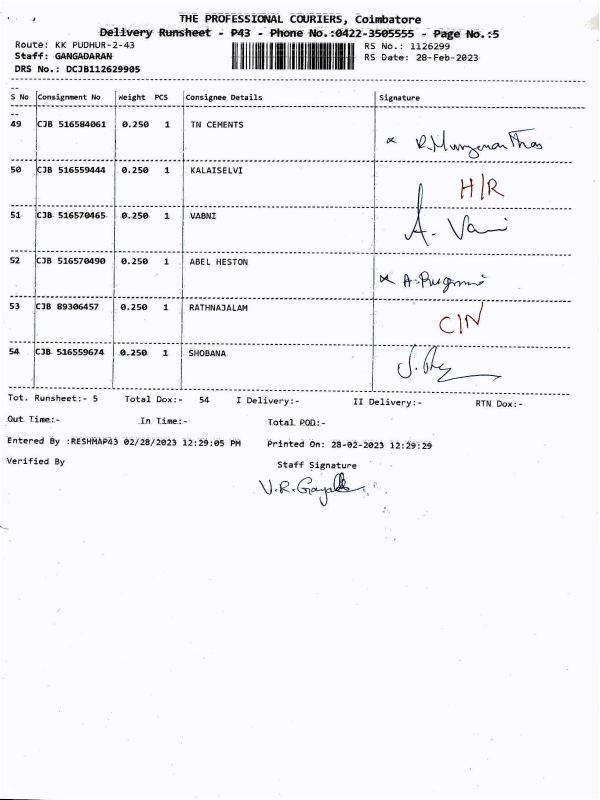 THE PROFESSIONAL COURIERS, Coimbatore
Delivery Runsheet - P43 - Phone No.:0422-3505555 - Page No.:5
Route: KK PUDHUR-2-43 RS No.: 1126299
Staff: GANGADARAN RS Date: 28-Feb-2023
DRS No.: DCJB112629905
S No Consignment No Weight PCS Consignee Details Signature
49 CJB 516584061 0.250 1 TN CEMENTS
50 CJB 516559444 0.250 1 KALAISELVI H/R
51 CJB 516570465 0.250 1 VABNI A. Vani
52 CJB 516570490 0.250 1 ABEL HESTON
53 CJB 89306457 0.250 1 RATHNAJALAM C/N
54 CJB 516559674 0.250 1 SHOBANA
Tot. Runsheet:- 5 Total Dox:- 54 I Delivery:- II Delivery:- RTN Dox:-
Out Time:- In Time:- Total POD:-
Entered By :RESHMAP43 02/28/2023 12:29:05 PM Printed On: 28-02-2023 12:29:29
Verified By Staff Signature
V.R.